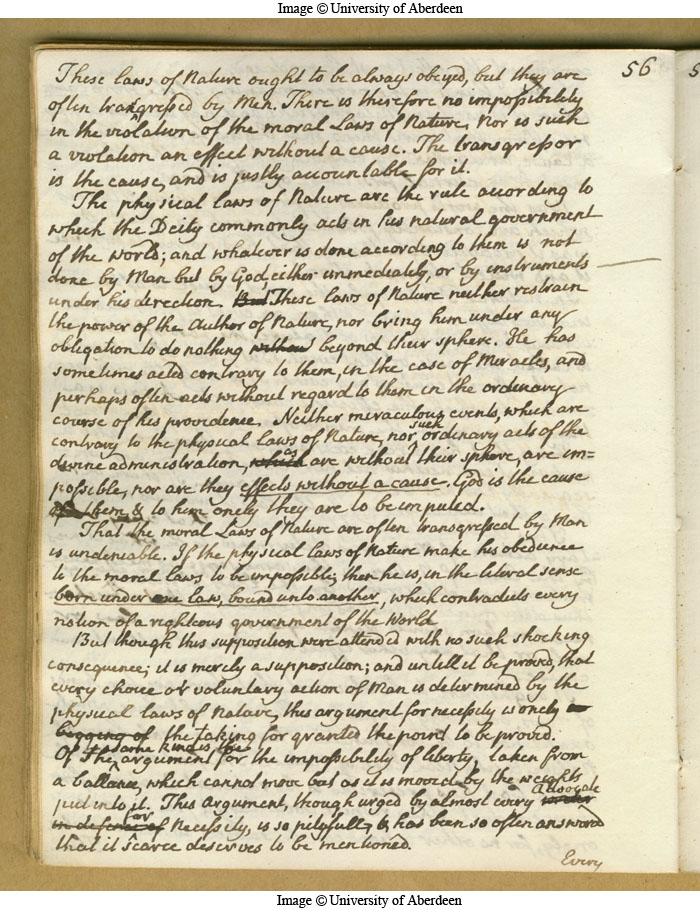 Image © University of Aberdeen
56
These laws of Nature ought to be always obeyed, but they are
often transgressed by Men. There is therefore no impossibility
in the violation of the moral Laws of Nature. Nor is such
a violation an effect without a cause. The transgressor
is the cause, and is justly accountable for it.
The physical laws of Nature are the rule according to
which the Deity commonly acts in his natural government
of the world; and whatever is done according to them is not
done by Man but by God, either immediately, or by instruments
under his direction. But These laws of Nature neither restrain
the power of the Author of Nature, nor bring him under any
obligation to do nothing without beyond their sphere. He has
sometimes acted contrary to them, in the case of Miracles, and
perhaps often acts without regard to them in the ordinary
course of his providence. Neither miraculous events, which are
contrary to the physical laws of Nature, nor such ordinary acts of the
divine administration, which as are without their sphere, are im=
possible, nor are they effects without a cause. God is the cause
of them, & to him onely they are to be imputed.
That the moral Laws of Nature are often transgressed by Man
is undeniable. If the physical laws of Nature make his obedience
to the moral laws to be impossible, then he is, in the literal sense
born under one law, bound unto another, which contradicts every
notion of a righteous government of the World
But though this supposition were attended with no such shocking
consequence; it is merely a supposition; and untill it be proved, that
every choice or voluntary action of Man is determined by the
physical laws of Nature, this argument for necessity is onely
begging of the taking for granted the point to be proved.
Of the same kind is the argument for the impossibility of liberty, taken from
a ballance, which cannot move but as it is moved by the weights
put into it. This argument, though urged by almost every Advocate
in defense of for Necessity, is so pityfull, & has been so often answered
that it scarce deserves to be mentioned.
Every
Image © University of Aberdeen